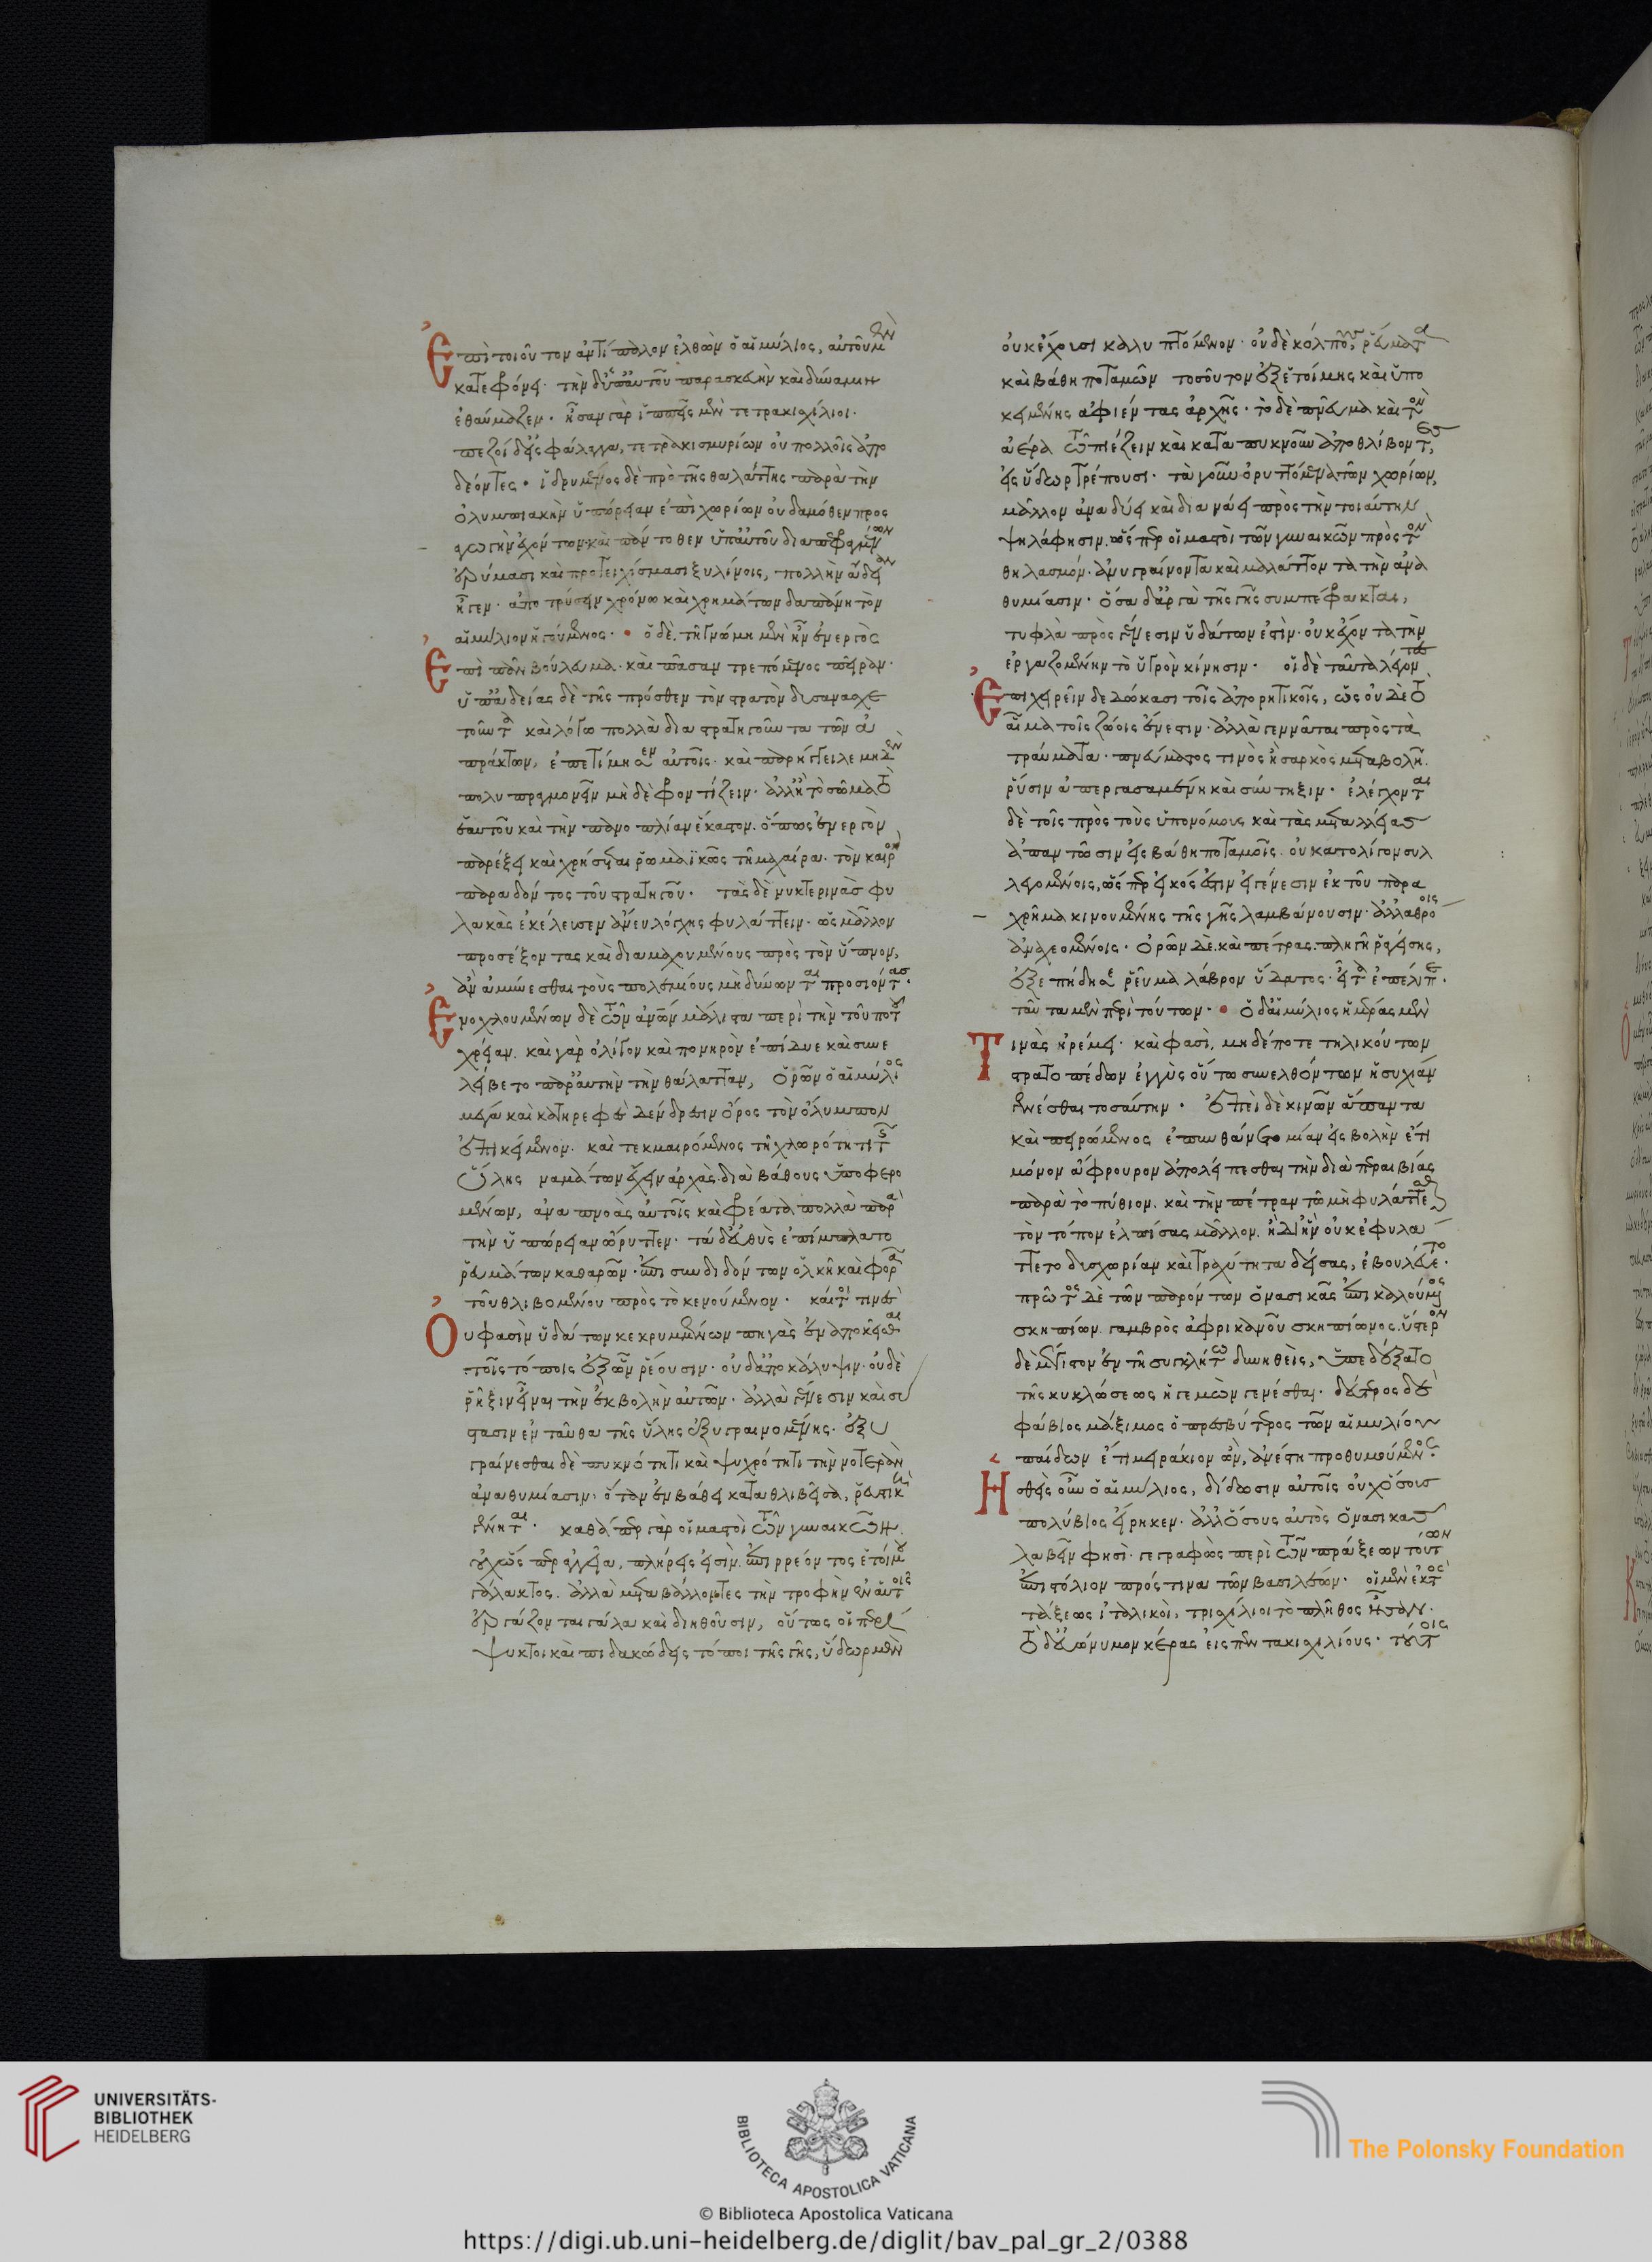 Ἐπὶ τοιοῦτον ἀντίπαλον ἐλθὼν ὁ αἰμύλιος, αὐτοῦ μὲν
κατεφρόνει. τὴν δ' ὑπ' αὐτοῦ παρασκευὴν καὶ δύναμιν
ἐθαύμαζεν. ἦσαν γὰρ ἱππεῖς μὲν τετρακιχίλιοι.
πεζοὶ δ' εἰς φάλαγγα, τετρακισμυρίων οὐ πολλοῖς ἀπο
δέοντες. ἱδρυμένος δὲ πρὸ τῆς θαλάττης παρὰ τὴν
ὀλυμπιακὴν ὑπώρειαν ἐπὶ χωρίων οὐδαμόθεν προς
αγωγὴν ἐχόντων καὶ πάντοθεν ὑπ' αὐτοῦ διαπεφραγμένων
ἐρύμασι καὶ προτειχίσμασι ξυλίνοις, πολλὴν ἄδειαν
ἦγεν. ἀποτρύσειν χρόνω καὶ χρημάτων δαπάνη τὸν
αἰμύλιον ἡγούμενος. ὁ δὲ τῇ γνώμη μὲν ἦν ἐνεργὸς
Ἐπὶ πᾶν βούλευμα. καὶ πᾶσαν τρεπόμενος πεῖραν.
ὑπ' ἀδείας δὲ τῆς πρόσθεν τὸν στρατὸν δυσανασχε
τοῦντα καὶ λόγω πολλὰ διαστρατηγοῦντα τῶν ἀ
πράκτων, ἐπετίμησεν αὐτοῖς. καὶ παρήγγειλε μηδὲν
πολυπραγμονεῖν μὴ δὲ φροντίζειν. ἀλλ' ἢ τὸ σῶμα τὸ
ἑαυτοῦ καὶ τὴν πανοπλίαν ἕκαστον. ὅπως ἐνεργὸν
παρέξει καὶ χρήσεται ῥωμαϊκῶς τῇ μαχαίρα. τὸν καιρὸν
παραδόντος τοῦ στρατηγοῦ. τὰς δὲ νυκτερινὰς φυ
λακὰς ἐκέλευσεν ἄνευ λόγχης φυλάττειν. ὡς μᾶλλον
προσέξοντας καὶ διαμαχουμένους πρὸς τὸν ὕπνον,
ἂν ἀμύνεσθαι τοὺς πολεμίους μὴ δύνωνται προσιόντας.
Ἐνοχλουμένων δὲ τῶν ἀνθρώπων μάλιστα περὶ τὴν τοῦ ποτοῦ
χρείαν. καὶ γὰρ ὀλίγον καὶ πονηρὸν ἐπίδυε καὶ συνε
λείβετο παρ' αὐτὴν τὴν θάλατταν, ὁρῶν ὁ αἰμύλιος
μέγα καὶ κατηρεφὲς δένδρεσιν ὄρος τὸν ὄλυμπον
ἐπικείμενον. καὶ τεκμαιρόμενος τῇ χλωρότητι τῆς
ὕλης ναμάτων ἔχειν ἀρχὰς. διὰ βάθους ὑποφερο
μένων, ἀναπνοὰς αὐτοῖς καὶ φρέατα πολλὰ παρὰ
τὴν ὑπώρειαν ὤρυττεν. τὰ δ' εὐθὺς ἐπίμπλατο
ῥευμάτων καθαρῶν. ἐπισυνδιδόντων ὁλκῇ καὶ φορᾷ
τοῦ θλιβομένου πρὸς τὸ κενούμενον. καίτοι τινὲς
Οὔ φασιν ὑδάτων κεκρυμμένων πηγὰς ἐναποκεῖσθαι
τοῖς τόποις ἐξ ὧν ῥέουσιν. οὐδ' ἀποκάλυψιν. οὐδὲ
ῥῆξιν εἶναι τὴν ἐκβολὴν αὐτῶν. ἀλλὰ γένεσιν καὶ σύ
στασιν ἐνταῦθα τῆς ὕλης ἐξυγραινομένης. ἐξυ
γραίνεσθαι δὲ πυκνότητι καὶ ψυχρότητι τὴν νοτερὰν
ἀναθυμίασιν. ὅταν ἐν βάθει καταθλιβεῖσα, ῥευστικὴ
γένηται. καθάπερ γὰρ οἱ μαστοὶ τῶν γυναικῶν.
οὐχ ὡς περ ἀγγεῖα, πλήρεις εἰσὶν. ἐπιρρέοντος ἑτοίμου
γάλακτος. ἀλλὰ μεταβάλλοντες τὴν τροφὴν ἐν αὑτοῖς
ἐργάζονται γάλα καὶ διηθοῦσιν, οὕτως οἱ περί
ψυκτοι καὶ πιδακώδεις τόποι τῆς γῆς, ὕδωρ μὲν
οὐκ ἔχουσι καλυπτόμενον. οὐδὲ κόλπους ῥεύματα
καὶ βάθη ποταμῶν τοσοῦτον ἐξ ἑτοίμης καὶ ὑπο
κειμένης ἀφιέντας ἀρχῆς. τὸ δὲ πνεῦμα καὶ τὸν
ἀέρα τῷ πιέζειν καὶ καταπυκνοῦν ἀποθλίβοντες,
εἰς ὕδωρ τρέπουσι. τὰ γοῦν ὀρυττόμενα τῶν χωρίων,
μᾶλλον ἀναδύει καὶ διανάει πρὸς τὴν τοιαύτην
ψηλάφησιν. ὥς περ οἱ μαστοὶ τῶν γυναικῶν πρὸς τὸν
θηλασμόν. ἀνυγραίνοντα καὶ μαλάττοντα τὴν ἀνα
θυμίασιν. ὅσα δ' ἀργὰ τῆς γῆς συμπέφρακται,
τυφλὰ πρὸς γένεσιν ὑδάτων ἐστὶν. οὐκ ἔχοντα τὴν
ἐργαζομένην τὸ ὑγρὸν κίνησιν. οἱ δὲ ταῦτα λέγοντες
Ἐπιχειρεῖν δεδώκασι τοῖς ἀπορητικοῖς, ὡς οὐδὲ τὸ
αἷμα τοῖς ζώοις ἔνεστιν. ἀλλὰ γεννᾶται πρὸς τὰ
τραύματα. πνεύματος τινὸς ἢ σαρκὸς μεταβολῇ.
ῥύσιν ἀπεργασαμένη καὶ σύντηξιν. ἐλέγχονται
δὲ τοῖς πρὸς τοὺς ὑπονόμους καὶ τὰς μεταλλείας
ἀπαντῶσιν εἰς βάθη ποταμοῖς. οὐ κατολίγον συλ
λεγομένοις, ὥς περ εἰκός ἐστιν εἰ γένεσιν ἐκ τοῦ παρα
χρῆμα κινουμένης τῆς γῆς λαμβάνουσιν. ἀλλ' ἀθρόοις
ἀναχεομένοις. ὁρῶν δὲ. καὶ πέτρας. πληγῇ ῥαγείσης,
ἐξεπήδησε ῥεῦμα λάβρον ὕδατος. εἶτα ἐπέλιπε.
ταῦτα μὲν περὶ τούτων. ὁ δ' αἰμύλιος ἡμέρας μὲν
Τινὰς ἠρέμει. καὶ φασὶ, μηδέποτε τηλικούτων
στρατοπέδων ἐγγὺς οὕτω συνελθόντων ἡσυχίαν
γενέσθαι τοσαύτην. ἐπεὶ δὲ κινῶν ἅπαντα
καὶ πειρώμενος ἐπυνθάνετο μίαν εἰσβολὴν ἔτι
μόνον ἄφρουρον ἀπολείπεσθαι τὴν διὰ περραιβίας
παρὰ τὸ πύθιον. καὶ τὴν πέτραν τῷ μὴ φυλάττεσθαι
τὸν τόπον ἐλπίσας μᾶλλον. ἢ δι' ἣν οὐκ ἐφυλά
ττετο δυσχωρίαν καὶ τραχύτητα δείσας, ἐβουλεύετο.
πρῶτος δὲ τῶν παρόντων ὁ νασικᾶς ἐπικαλούμενος
σκηπίων. γαμβρὸς ἀφρικανοῦ σκηπίωνος. ὕστερον
δὲ μέγιστον ἐν τῇ συγκλήτω δυνηθεὶς, ὑπεδέξατο
τῆς κυκλώσεως ἡγεμὼν γενέσθαι. δεύτερος δὲ
φάβιος μάξιμος ὁ πρεσβύτερος τῶν αἰμυλίου
παίδων ἔτι μειράκιον ὢν, ἀνέστη προθυμούμενος.
Ἡσθεὶς οὖν ὁ αἰμύλιος, δίδωσιν αὐτοῖς οὐχ ὅσους
πολύβιος εἴρηκεν. ἀλλ' ὅσους αὐτὸς ὁ νασικᾶς
λαβεῖν φησὶ. γεγραφὼς περὶ τῶν πράξεων τούτων
ἐπιστόλιον πρός τινα τῶν βασιλέων. οἱ μὲν ἐκτὸς
τάξεως ἰταλικοὶ, τρισχίλιοι τὸ πλῆθος ἦσαν.
τὸ δ' εὐώνυμον κέρας εἰς πεντακισχιλίους. τούτοις
UNIVERSITÄTS-
BIBLIOTHEK
HEIDELBERG
BIBLIOTECA APOSTOLICA VATICANA
The Polonsky Foundation
© Biblioteca Apostolica Vaticana
https://digi.ub.uni-heidelberg.de/diglit/bav_pal_gr_2/0388